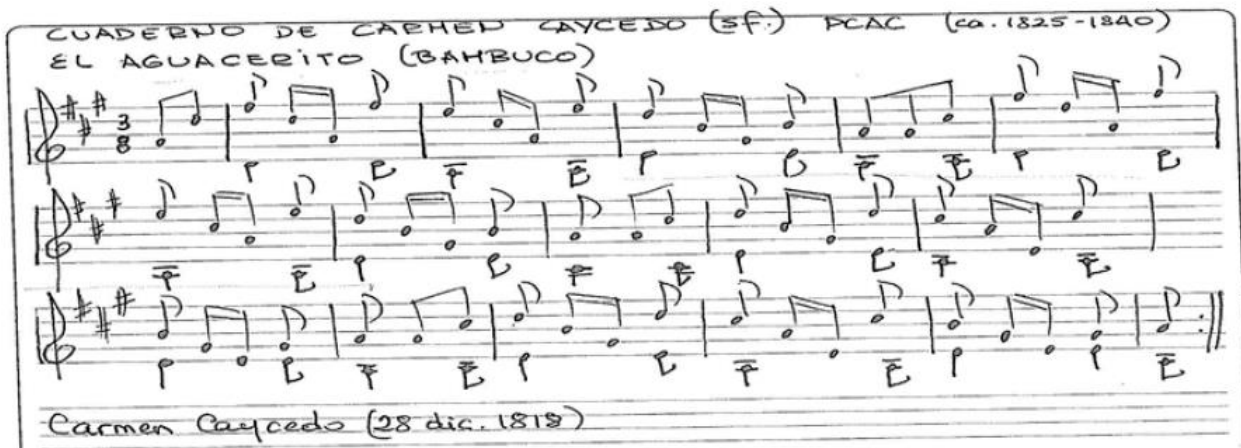 CUADERNO DE CARMEN CAYCEDO (sf.) PCAC (ca. 1825-1840)
EL AGUACERITO (BAMBUCO)
3
8
Carmen Caycedo (28 dic. 1818)